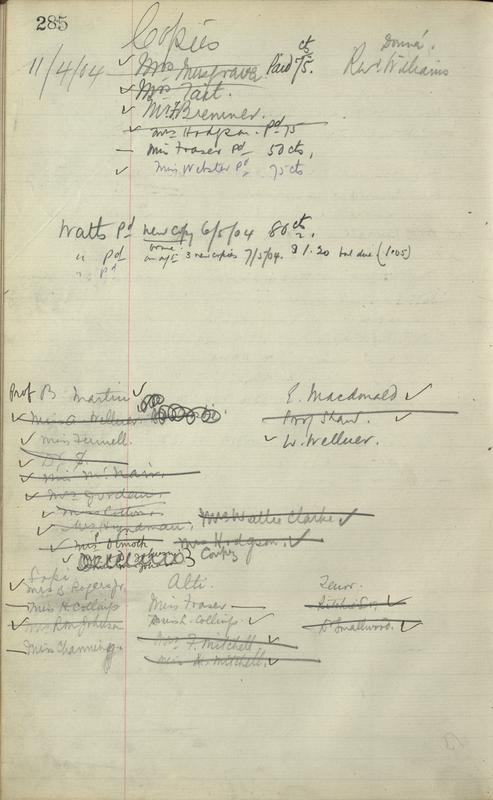 285
Copies
11/4/04 ✓ Mrs Musgrave Paid 75 cts. Donna. Revd. Williams
✓ Mrs Tait.
✓ Mr F Bremner.
✓ Mrs Hodgson. Pd 75
— Miss Fraser Pd 50 cts,
✓ Miss Webster Pd 75 cts
Watts Pd new copy 6/5/04 80 cts.
" Pd on a/c 3 new copies 7/5/04. $1.20 bal due (1.05)
" Pd
Prof B Martin ✓
E. Macdonald ✓
✓ Miss A. Wellner.
Prof Shaw. ✓
✓ Miss Fennell.
✓ W. Wellner.
✓ Dr. S.
✓ Miss McNair.
✓ Mrs Jordan.
✓ Miss Collins
✓ Mrs Hyndman, Mrs Wallis Clarke ✓
✓ Mrs Hodgson. ✓
Copies
Sopr Alti. Tenor.
✓ Mrs B Rogers Jr.
— Miss H. Collings Miss Fraser —
✓ Mrs R M Johnson Miss L. Collings. ✓ D Smallwood. ✓
— Miss Channing Mrs F. Mitchell ✓
Miss K. Mitchell. ✓